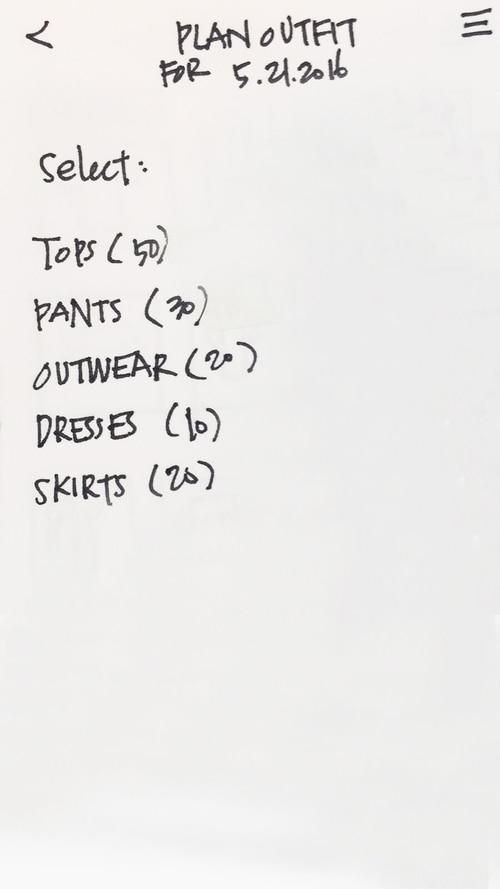 <
PLAN OUTFIT
FOR 5.21.2016
Select:
TOPS (50)
PANTS (30)
OUTWEAR (20)
DRESSES (10)
SKIRTS (20)